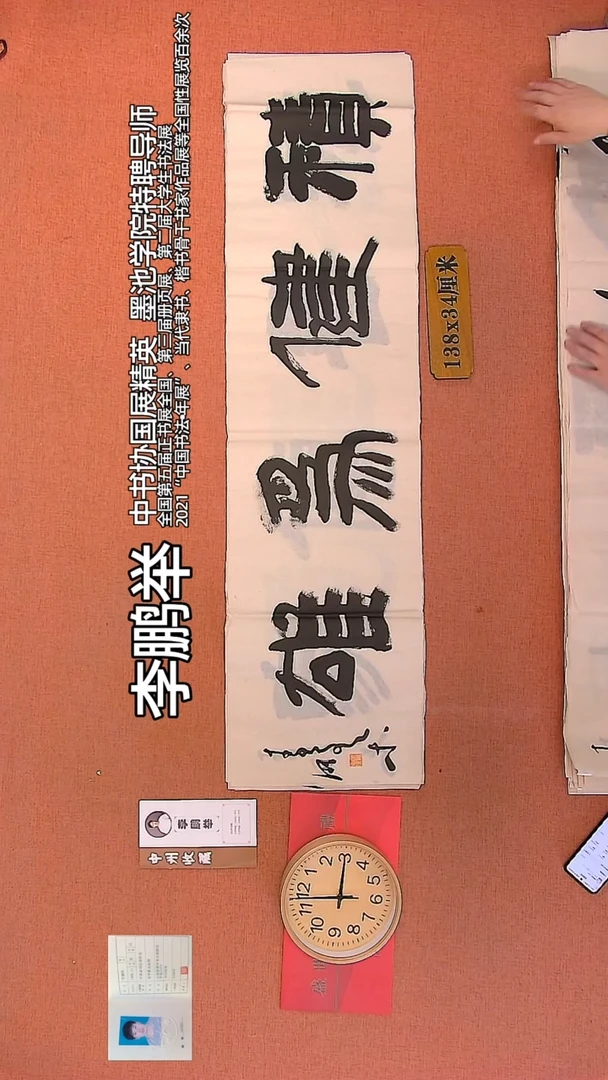 李鹏举
中书协国展精英 墨池学院特聘导师
全国第五届正书展全国、第三届册页展、第二届大学生书法展
2021“中国书法·年展”、当代隶书、楷书骨干书家作品展等全国性展览百余次
積健為雄
138x34厘米
李鹏举
中州收藏
12
1
2
3
4
5
6
7
8
9
10
11